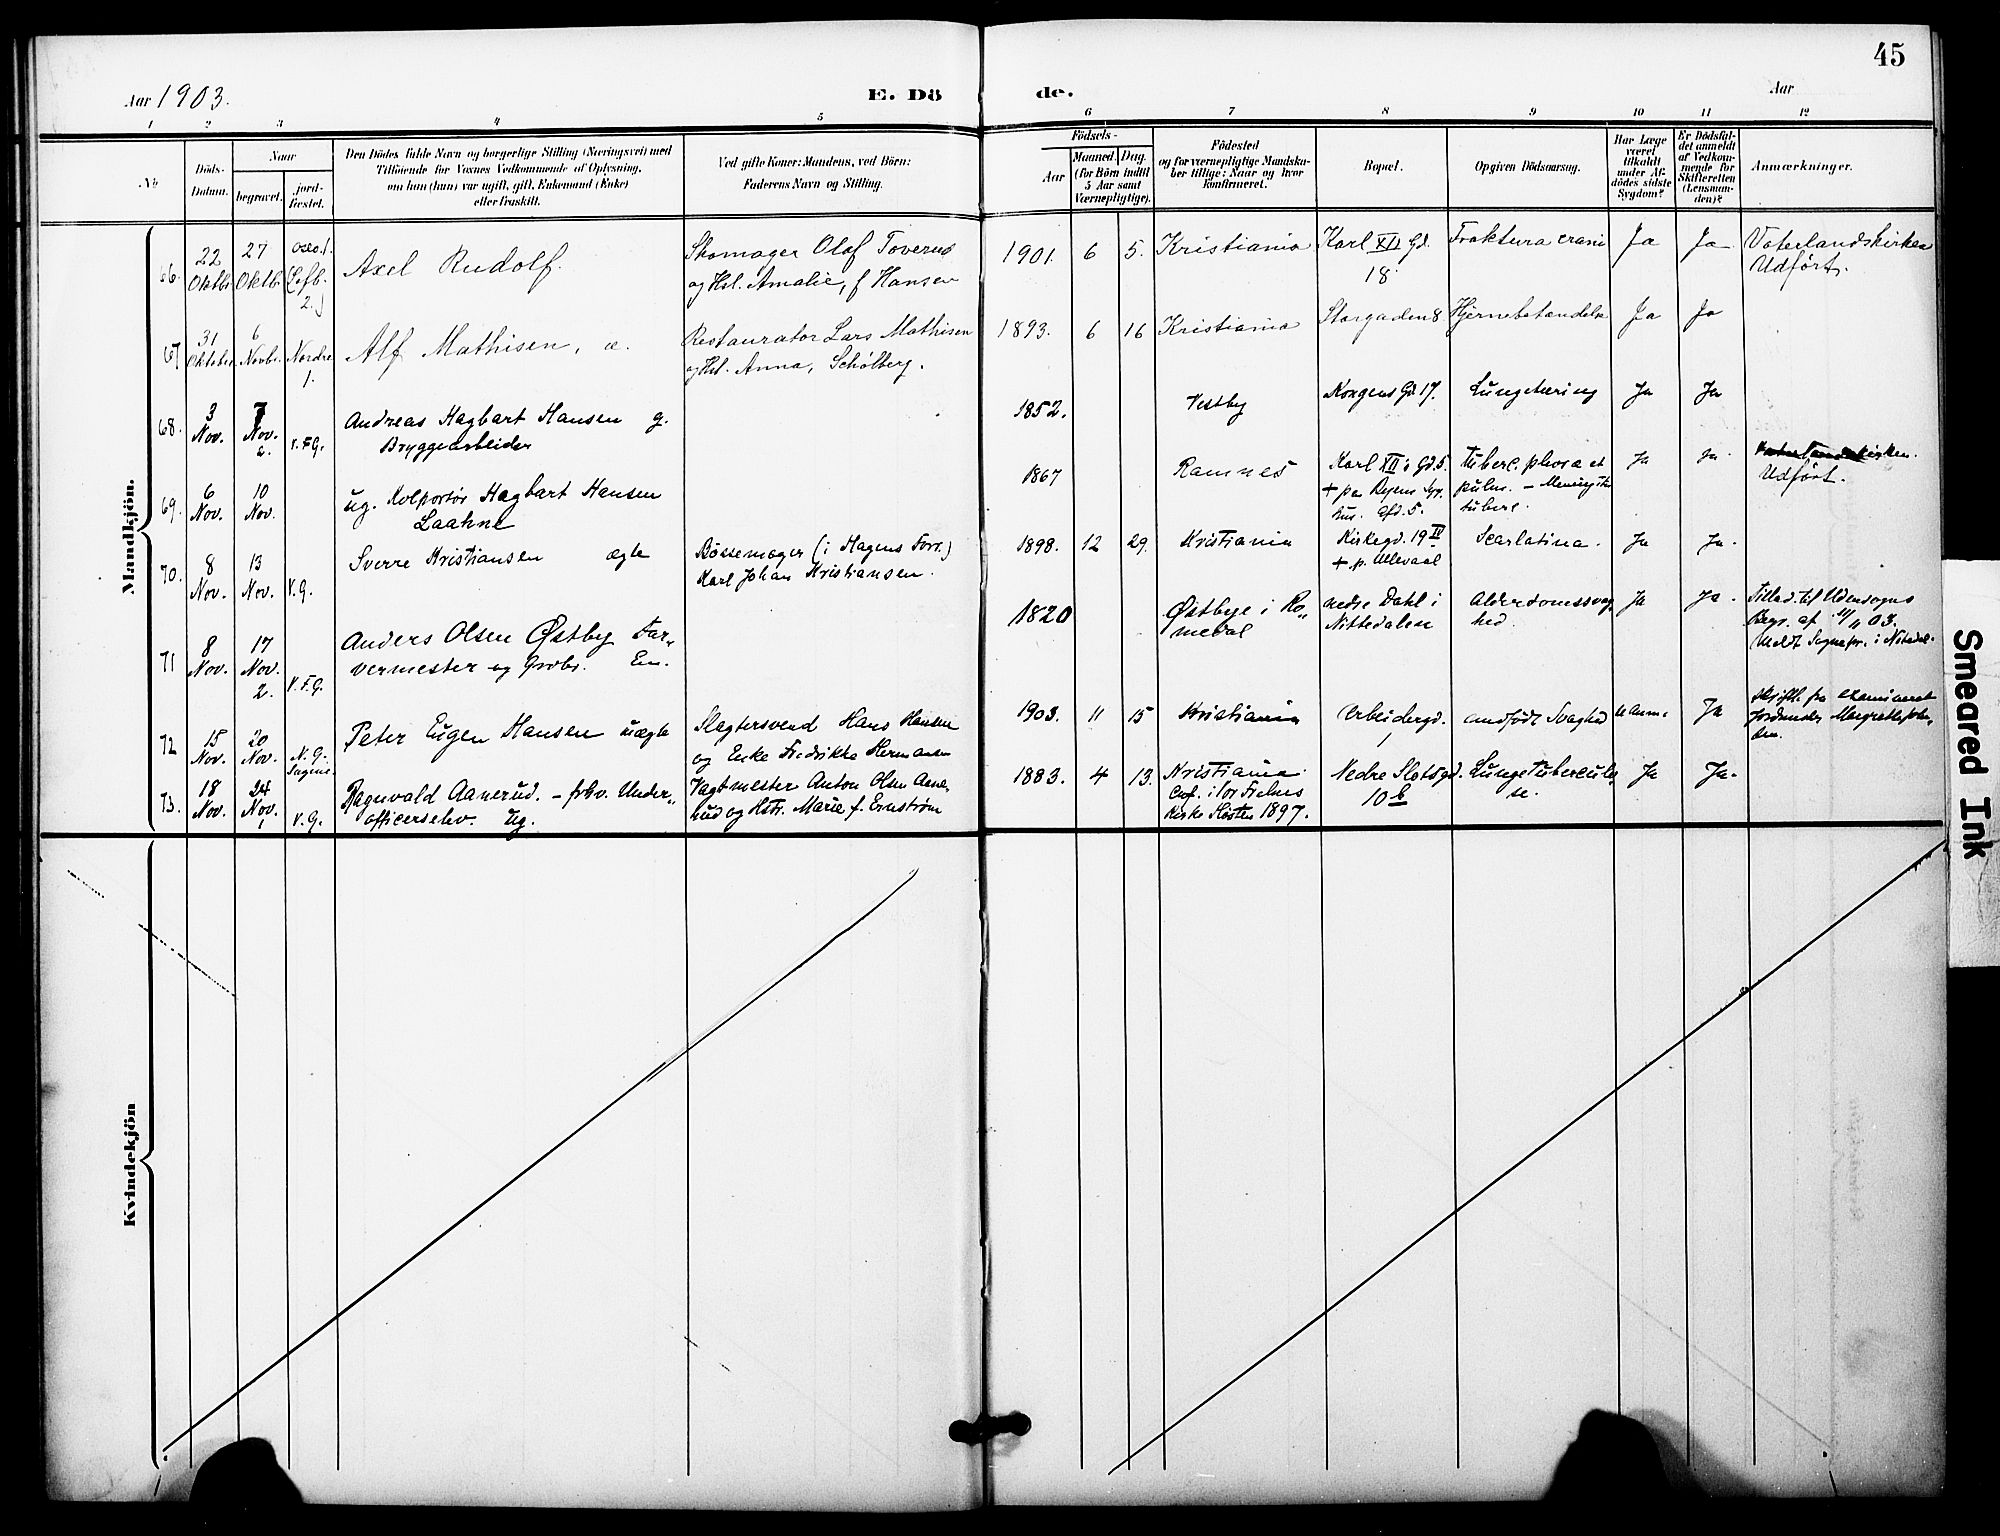 45
Aar 1903.
E. Dö
de.
Aar
1 2 3 4 5 6 7 8 9 10 11 12
No
Döds-
Datum.
Naar
begravet.
jord-
fæstet.
Den Dödes fulde Navn og borgerlige Stilling (Næringsvei) med
Tilföiende for Voxnes Vedkommende af Oplysning,
om han (hun) var ugift, gift, Enkemand (Enke)
eller fraskilt.
Ved gifte Koner: Mandens, ved Börn:
Faderens Navn og Stilling.
Födsels-
Aar
Maaned. Dag.
(for Börn indtil
5 Aar samt
Værnepligtige).
Födested
og for værnepligtige Mandska-
ber tillige: Naar og hvor
konfirmeret.
Bopæl.
Opgiven Dödsaarsag.
Har Læge
været
tilkaldt
under Af-
dödes sidste
Sygdom?
Er Dödsfal-
det anmeldt
af Vedkom-
mende for
Skifteretten
(Lensman-
den)?
Anmærkninger.
Mandkjön.
66.
22
Oktbr
27
Oktbr
Axel Rudolf.
Skomager Olaf
og Hst. Amalie, f Hansen
1901. 6 5.
Kristiania
Karl XII Gd.
18
Fraktura crani
Ja
Ja
Vaterlandskirken
Udført.
67
31
Oktober
6
Novbr.
Nordre
1.
Alf Mathisen, æ.
Restaurator Lars Mathisen
og Hst. Anna, Schölberg.
1893. 6 16
Kristiania
Storgaden 8.
Hjernebetændelse
Ja
Ja
68.
3
Nov.
7
Nov.
2.
V.F.G.
Andreas Hagbart Hansen g.
Bryggearbeider
1852.
Vestby
Kongens Gd 17.
Lungetæring
Ja
Ja
69.
6
Nov.
10
Nov.
ug. Kolportör Hagbart Hansen
Laahne
1867
Ramnes
Karl XII's Gd. 5.
+ paa Byens Syge
hus. afd. 5.
pulm. –
tuberc.
Ja
Ja
Udført.
70.
8
Nov.
13
Nov.
V.G.
Sverre Kristiansen ægte
Bössemager (i Hagens Forr.)
Karl Johan Kristiansen.
1898. 12 29.
Kristiania
Kirkegd. 19 II
+ p. Ullevaal
Scarlatina.
Ja
Ja
71
8
Nov.
17
Nov.
2.
V.F.G.
Anders Olsen Østby Far-
vermester og Em.
1820
Østbye i Ro-
medal
nedre Dahl i
Nittedalen
Alderdomssvag
hed.
Ja
Ja
Tillad. til Udensogns
Begr. af 11/11 03.
Meldt Sognepr. i Nitedal.
72
15
Nov.
20
Nov.
N.G.
Peter Eugen Hansen uægte
Slagtersvend Hans Hansen
og Enke Fredrikke Hermansen
1903. 11 15
Kristiania
Arbeidergd.
1
medfødt Svaghed
Ja
fra examineret
Jordmoder
73.
18
Nov.
24
Nov.
1
V.G.
Ragnvald Aanerud. – Under-
officerselev. Ug.
Vagtmester Anton Olsen Aane-
rud og Hstr. Marie f. Ernström
1883. 4 13.
Kristiania
Kirke Høsten 1897.
Nedre Slotsgd.
10 b
Lungetuberculo
se.
Ja
Ja
Kvindekjön
Smeared Ink